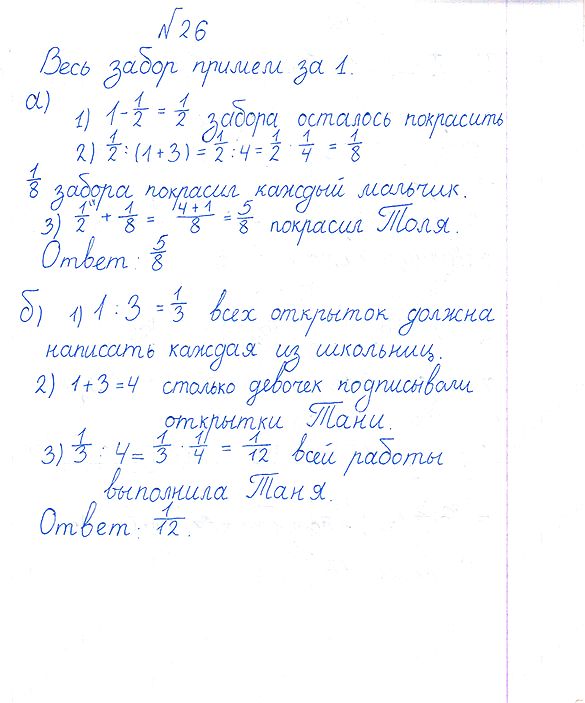 №26
Весь забор примем за 1.
а)
1) 1-1/2 = 1/2 забора осталось покрасить
2) 1/2 : (1+3) = 1/2 : 4 = 1/2 · 1/4 = 1/8
1/8 забора покрасил каждый мальчик.
3) 1/2 + 1/8 = (4+1)/8 = 5/8 покрасил Толя.
Ответ: 5/8
б) 1) 1 : 3 = 1/3 всех открыток должна
написать каждая из школьниц.
2) 1+3=4 столько девочек подписывали
открытки Тани.
3) 1/3 : 4 = 1/3 · 1/4 = 1/12 всей работы
выполнила Таня.
Ответ: 1/12.